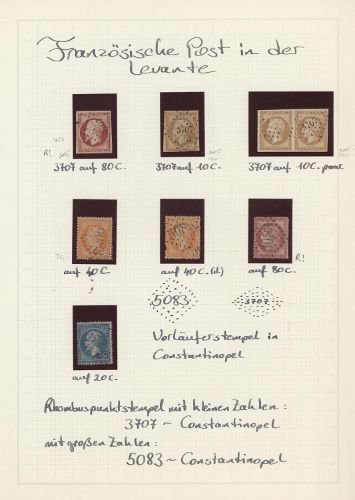 Französische Post in der
Levante
R!
3707 auf 80C.
3707 auf 10C.
3707 auf 10C. paar.
auf 40C.
auf 40C. (d)
auf 80C.
R!
5083
3707
Vorläuferstempel in
Constantinopel
auf 20C.
Rhombuspunktstempel mit kleinen Zahlen:
3707 ~ Constantinopel
mit großen Zahlen:
5083 ~ Constantinopel